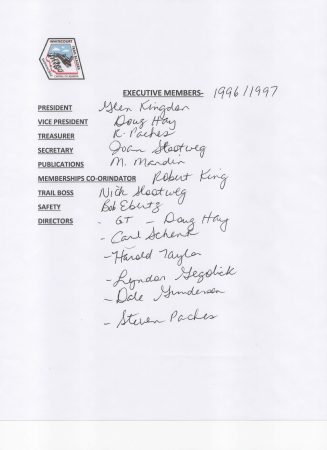 WHITECOURT
EXECUTIVE MEMBERS- 1996/1997
PRESIDENT Glen Kingdon
VICE PRESIDENT Doug Hay
TREASURER R. Paches
SECRETARY Joan Slootweg
PUBLICATIONS M. Mandin
MEMBERSHIPS CO-ORINDATOR Robert King
TRAIL BOSS Nick Slootweg
SAFETY Bob Ebertz
DIRECTORS - GT - Doug Hay
- Carl Schenk
- Harold Taylor
- Lyndon Gegolick
- Dale Gunderson
- Steven Paches